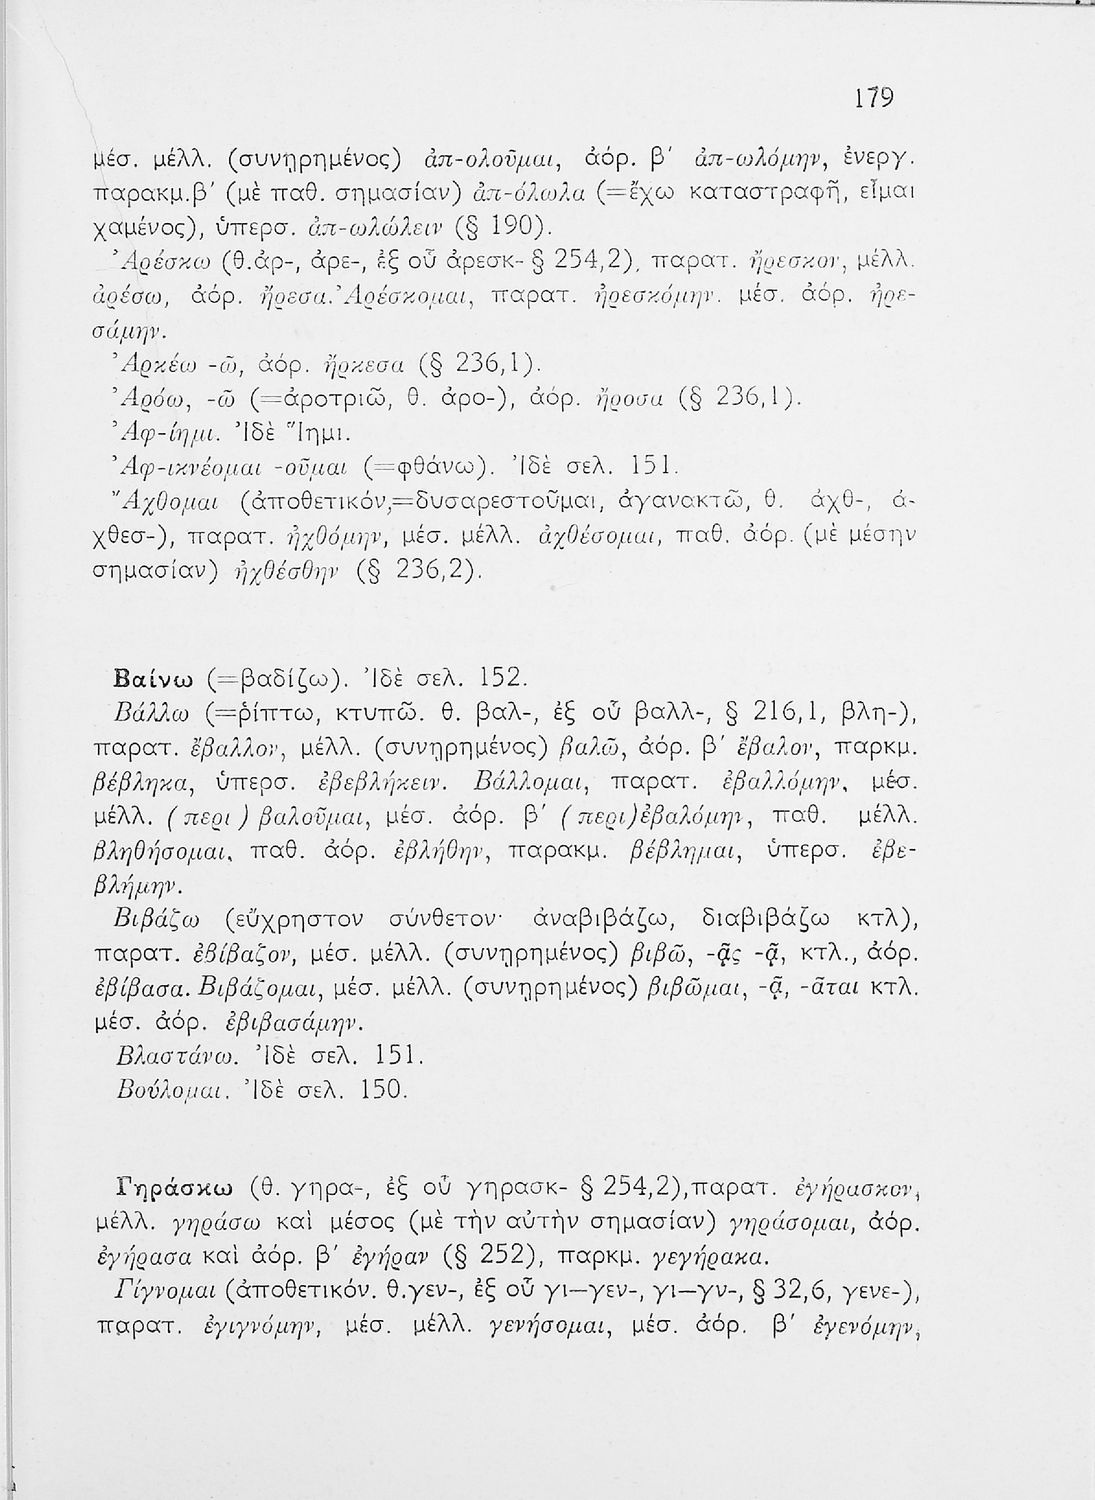 179
μέσ. μέλλ. (συνῃρημένος) ἀπ-ολοῦμαι, ἀόρ. β' ἀπ-ωλόμην, ἐνεργ.
παρακμ.β' (μὲ παθ. σημασίαν) ἀπ-όλωλα (=ἔχω καταστραφῆ, εἶμαι
χαμένος), ὑπερσ. ἀπ-ωλώλειν (§ 190).
Ἀρέσκω (θ.ἀρ-, ἀρε-, ἐξ οὗ ἀρεσκ- § 254,2), παρατ. ἤρεσκον, μέλλ.
ἀρέσω, ἀόρ. ἤρεσα. Ἀρέσκομαι, παρατ. ἠρεσκόμην. μέσ. ἀόρ. ἠρε-
σάμην.
Ἀρκέω -ῶ, ἀόρ. ἤρκεσα (§ 236,1).
Ἀρόω, -ῶ (=ἀροτριῶ, θ. ἀρο-), ἀόρ. ἤροσα (§ 236,1).
Ἀφ-ίημι. Ἰδὲ Ἵημι.
Ἀφ-ικνέομαι -οῦμαι (=φθάνω). Ἰδὲ σελ. 151.
Ἄχθομαι (ἀποθετικόν,=δυσαρεστοῦμαι, ἀγανακτῶ, θ. ἀχθ-, ἀ-
χθεσ-), παρατ. ἠχθόμην, μέσ. μέλλ. ἀχθέσομαι, παθ. ἀόρ. (μὲ μέσην
σημασίαν) ἠχθέσθην (§ 236,2).
Βαίνω (=βαδίζω). Ἰδὲ σελ. 152.
Βάλλω (=ῥίπτω, κτυπῶ. θ. βαλ-, ἐξ οὗ βαλλ-, § 216,1, βλη-),
παρατ. ἔβαλλον, μέλλ. (συνῃρημένος) βαλῶ, ἀόρ. β' ἔβαλον, παρκμ.
βέβληκα, ὑπερσ. ἐβεβλήκειν. Βάλλομαι, παρατ. ἐβαλλόμην, μέσ.
μέλλ. (περι) βαλοῦμαι, μέσ. ἀόρ. β' (περι)ἐβαλόμην, παθ. μέλλ.
βληθήσομαι, παθ. ἀόρ. ἐβλήθην, παρακμ. βέβλημαι, ὑπερσ. ἐβε-
βλήμην.
Βιβάζω (εὔχρηστον σύνθετον· ἀναβιβάζω, διαβιβάζω κτλ),
παρατ. ἐβίβαζον, μέσ. μέλλ. (συνῃρημένος) βιβῶ, -ᾷς -ᾷ, κτλ., ἀόρ.
ἐβίβασα. Βιβάζομαι, μέσ. μέλλ. (συνῃρημένος) βιβῶμαι, -ᾷ, -ᾶται κτλ.
μέσ. ἀόρ. ἐβιβασάμην.
Βλαστάνω. Ἰδὲ σελ. 151.
Βούλομαι. Ἰδὲ σελ. 150.
Γηράσκω (θ. γηρα-, ἐξ οὗ γηρασκ- § 254,2),παρατ. ἐγήρασκον,
μέλλ. γηράσω καὶ μέσος (μὲ τὴν αὐτὴν σημασίαν) γηράσομαι, ἀόρ.
ἐγήρασα καὶ ἀόρ. β' ἐγήραν (§ 252), παρκμ. γεγήρακα.
Γίγνομαι (ἀποθετικόν. θ.γεν-, ἐξ οὗ γι–γεν-, γι–γν-, § 32,6, γενε-),
παρατ. ἐγιγνόμην, μέσ. μέλλ. γενήσομαι, μέσ. ἀόρ. β' ἐγενόμην,